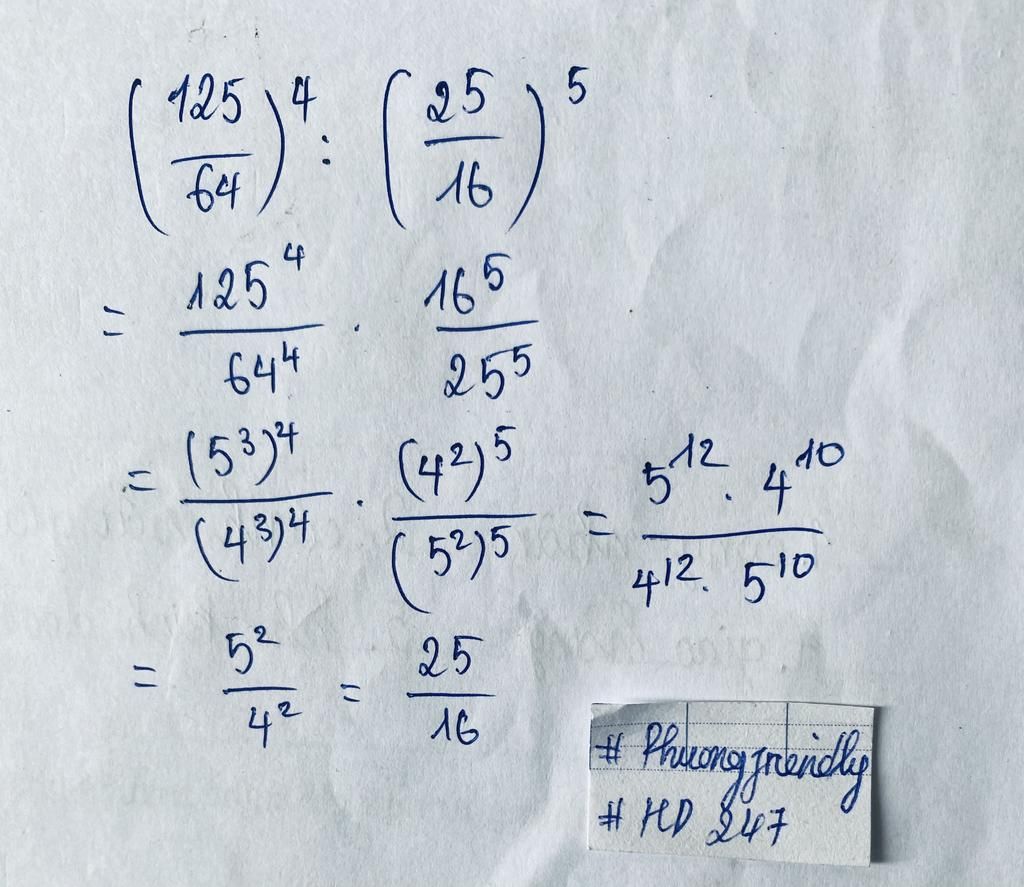 (125/64)^4 : (25/16)^5
= 125^4/64^4 . 16^5/25^5
= (5^3)^4/(4^3)^4 . (4^2)^5/(5^2)^5 = 5^12 . 4^10/4^12 . 5^10
= 5^2/4^2 = 25/16
# Phuongfriendly
# HD 247